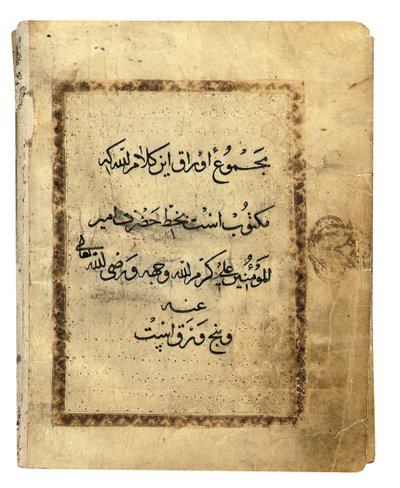 مجموع اوراق این کلام الله که
مکتوب است بخط حضرت امیر
المؤمنین علی کرم الله وجهه ورضی الله تعالی
عنه
وپنج ورق است